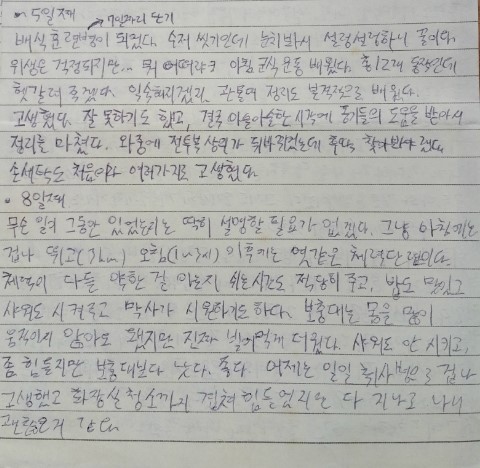 - 5일째 → 7일까지 단기
배식 훈련병이 되었다. 수저 씻기인데 눈치봐서 설렁설렁하니 꿀이다.
위생은 걱정되지만... 뭐 어떠랴 아침 군식운동 배웠다. 총 12개 동작인데
헷갈려 죽겠다. 익숙해지겠지. 관물대 정리도 본격적으로 배웠다.
고생했다. 잘 못하기도 했고, 결국 아슬아슬한 시각에 동기들의 도움을 받아서
정리를 마쳤다. 와중에 전투복 상의가 뒤바뀌었는데 후딱 찾아봐야겠다.
손세탁도 처음이라 여러가지로 고생했다.
• 8일째
무슨 일이 그동안 있었는지는 딱히 설명할 필요가 없겠다. 그냥 아침에는
겁나 뛰고(3km) 오침(1~3시) 이후에는 엿같은 체력단련이다.
체력이 다들 약한 걸 아는지 쉬는시간도 적당히 주고, 밥도 맛있고
샤워도 시켜주고 막사가 시원하기도 하다. 보충대는 몸을 많이
움직이지 않아도 됐지만 진짜 더웠다. 샤워도 안 시키고,
좀 힘들지만 보충대보다 낫다. 좋다. 어제는 일일 취사병으로 겁나
고생했고 화장실 청소까지 겹쳐 힘들었지만 다 지나고 나니
괜찮은거 같다.